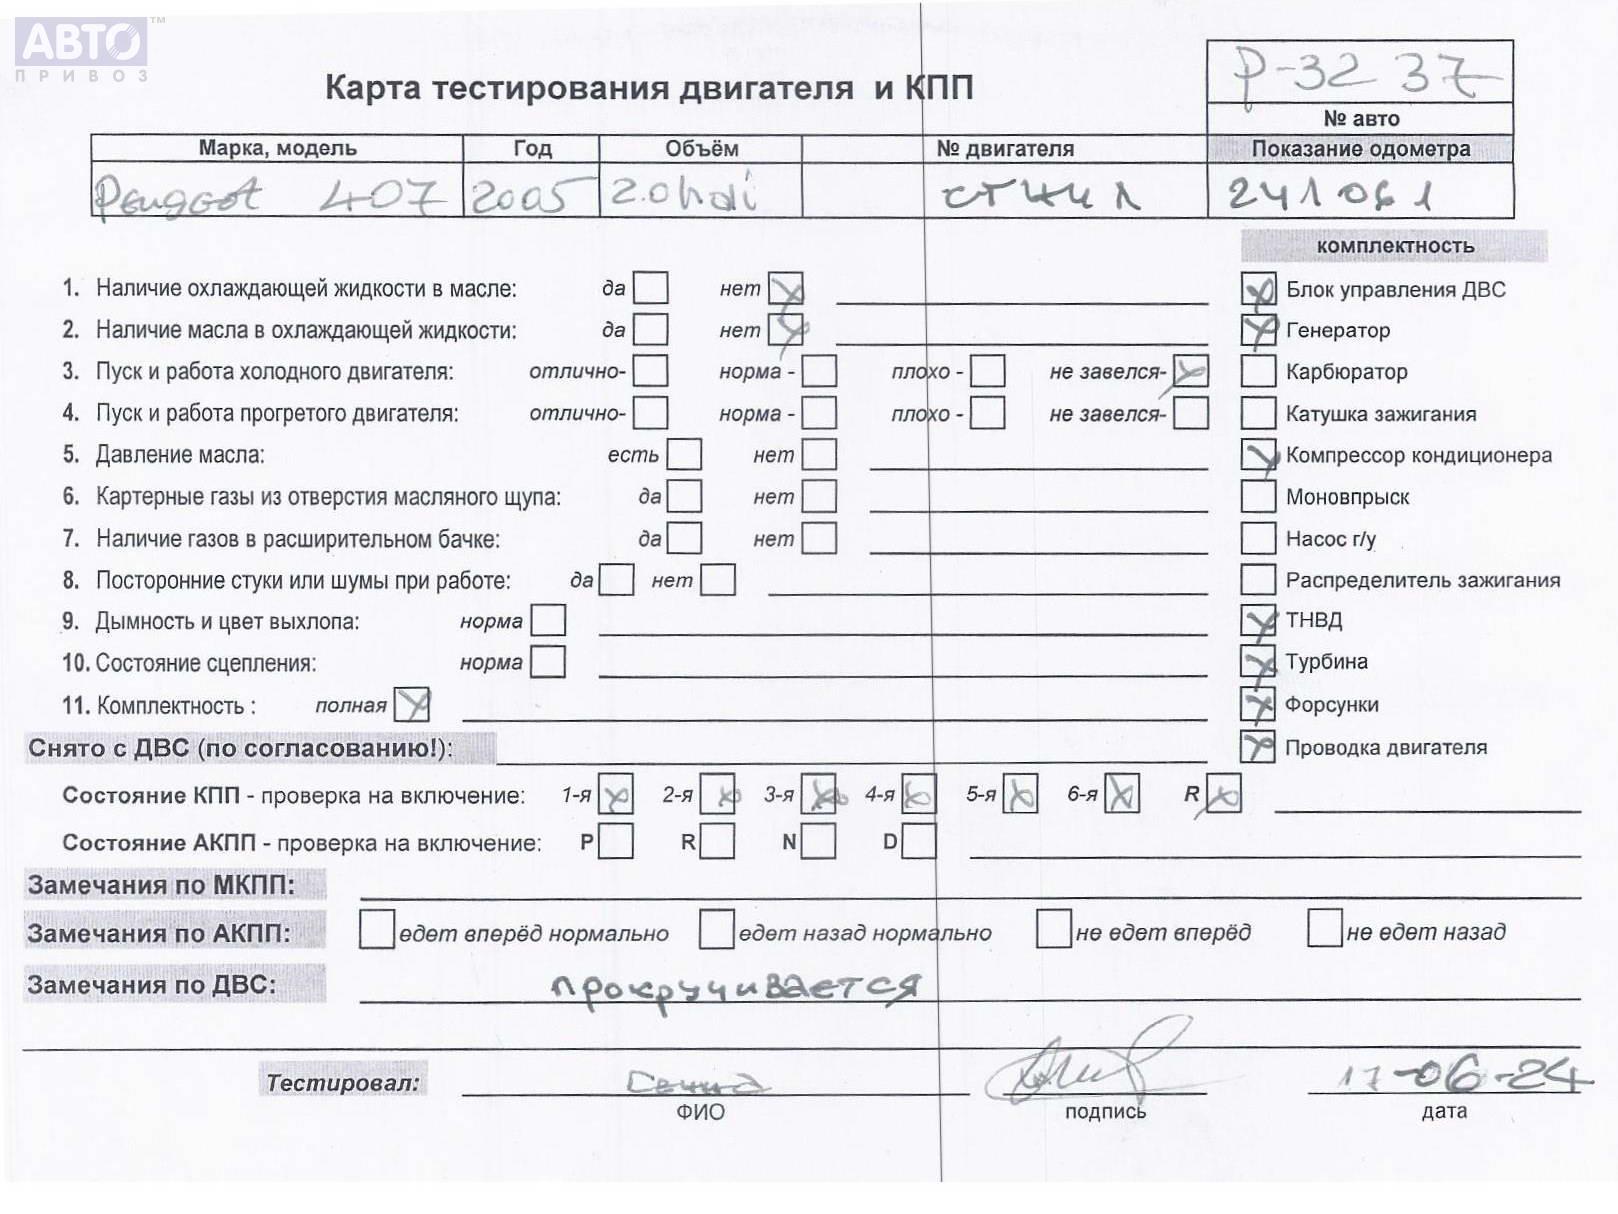 АВТО™
ПРИВОЗ
Карта тестирования двигателя и КПП
Р-32 37
№ авто
Марка, модель Год Объём № двигателя Показание одометра
Peugeot 407 2005 2.0hdi сгнил 241 061
комплектность
1. Наличие охлаждающей жидкости в масле: да нет Блок управления ДВС
2. Наличие масла в охлаждающей жидкости: да нет Генератор
3. Пуск и работа холодного двигателя: отлично- норма - плохо - не завелся- Карбюратор
4. Пуск и работа прогретого двигателя: отлично- норма - плохо - не завелся- Катушка зажигания
5. Давление масла: есть нет Компрессор кондиционера
6. Картерные газы из отверстия масляного щупа: да нет Моновпрыск
7. Наличие газов в расширительном бачке: да нет Насос г/у
8. Посторонние стуки или шумы при работе: да нет Распределитель зажигания
9. Дымность и цвет выхлопа: норма ТНВД
10. Состояние сцепления: норма Турбина
11. Комплектность : полная Форсунки
Снято с ДВС (по согласованию!): Проводка двигателя
Состояние КПП - проверка на включение: 1-я 2-я 3-я 4-я 5-я 6-я R
Состояние АКПП - проверка на включение: P R N D
Замечания по МКПП:
Замечания по АКПП: едет вперёд нормально едет назад нормально не едет вперёд не едет назад
Замечания по ДВС: прокручивается
Тестировал: 17-06-24
ФИО подпись дата